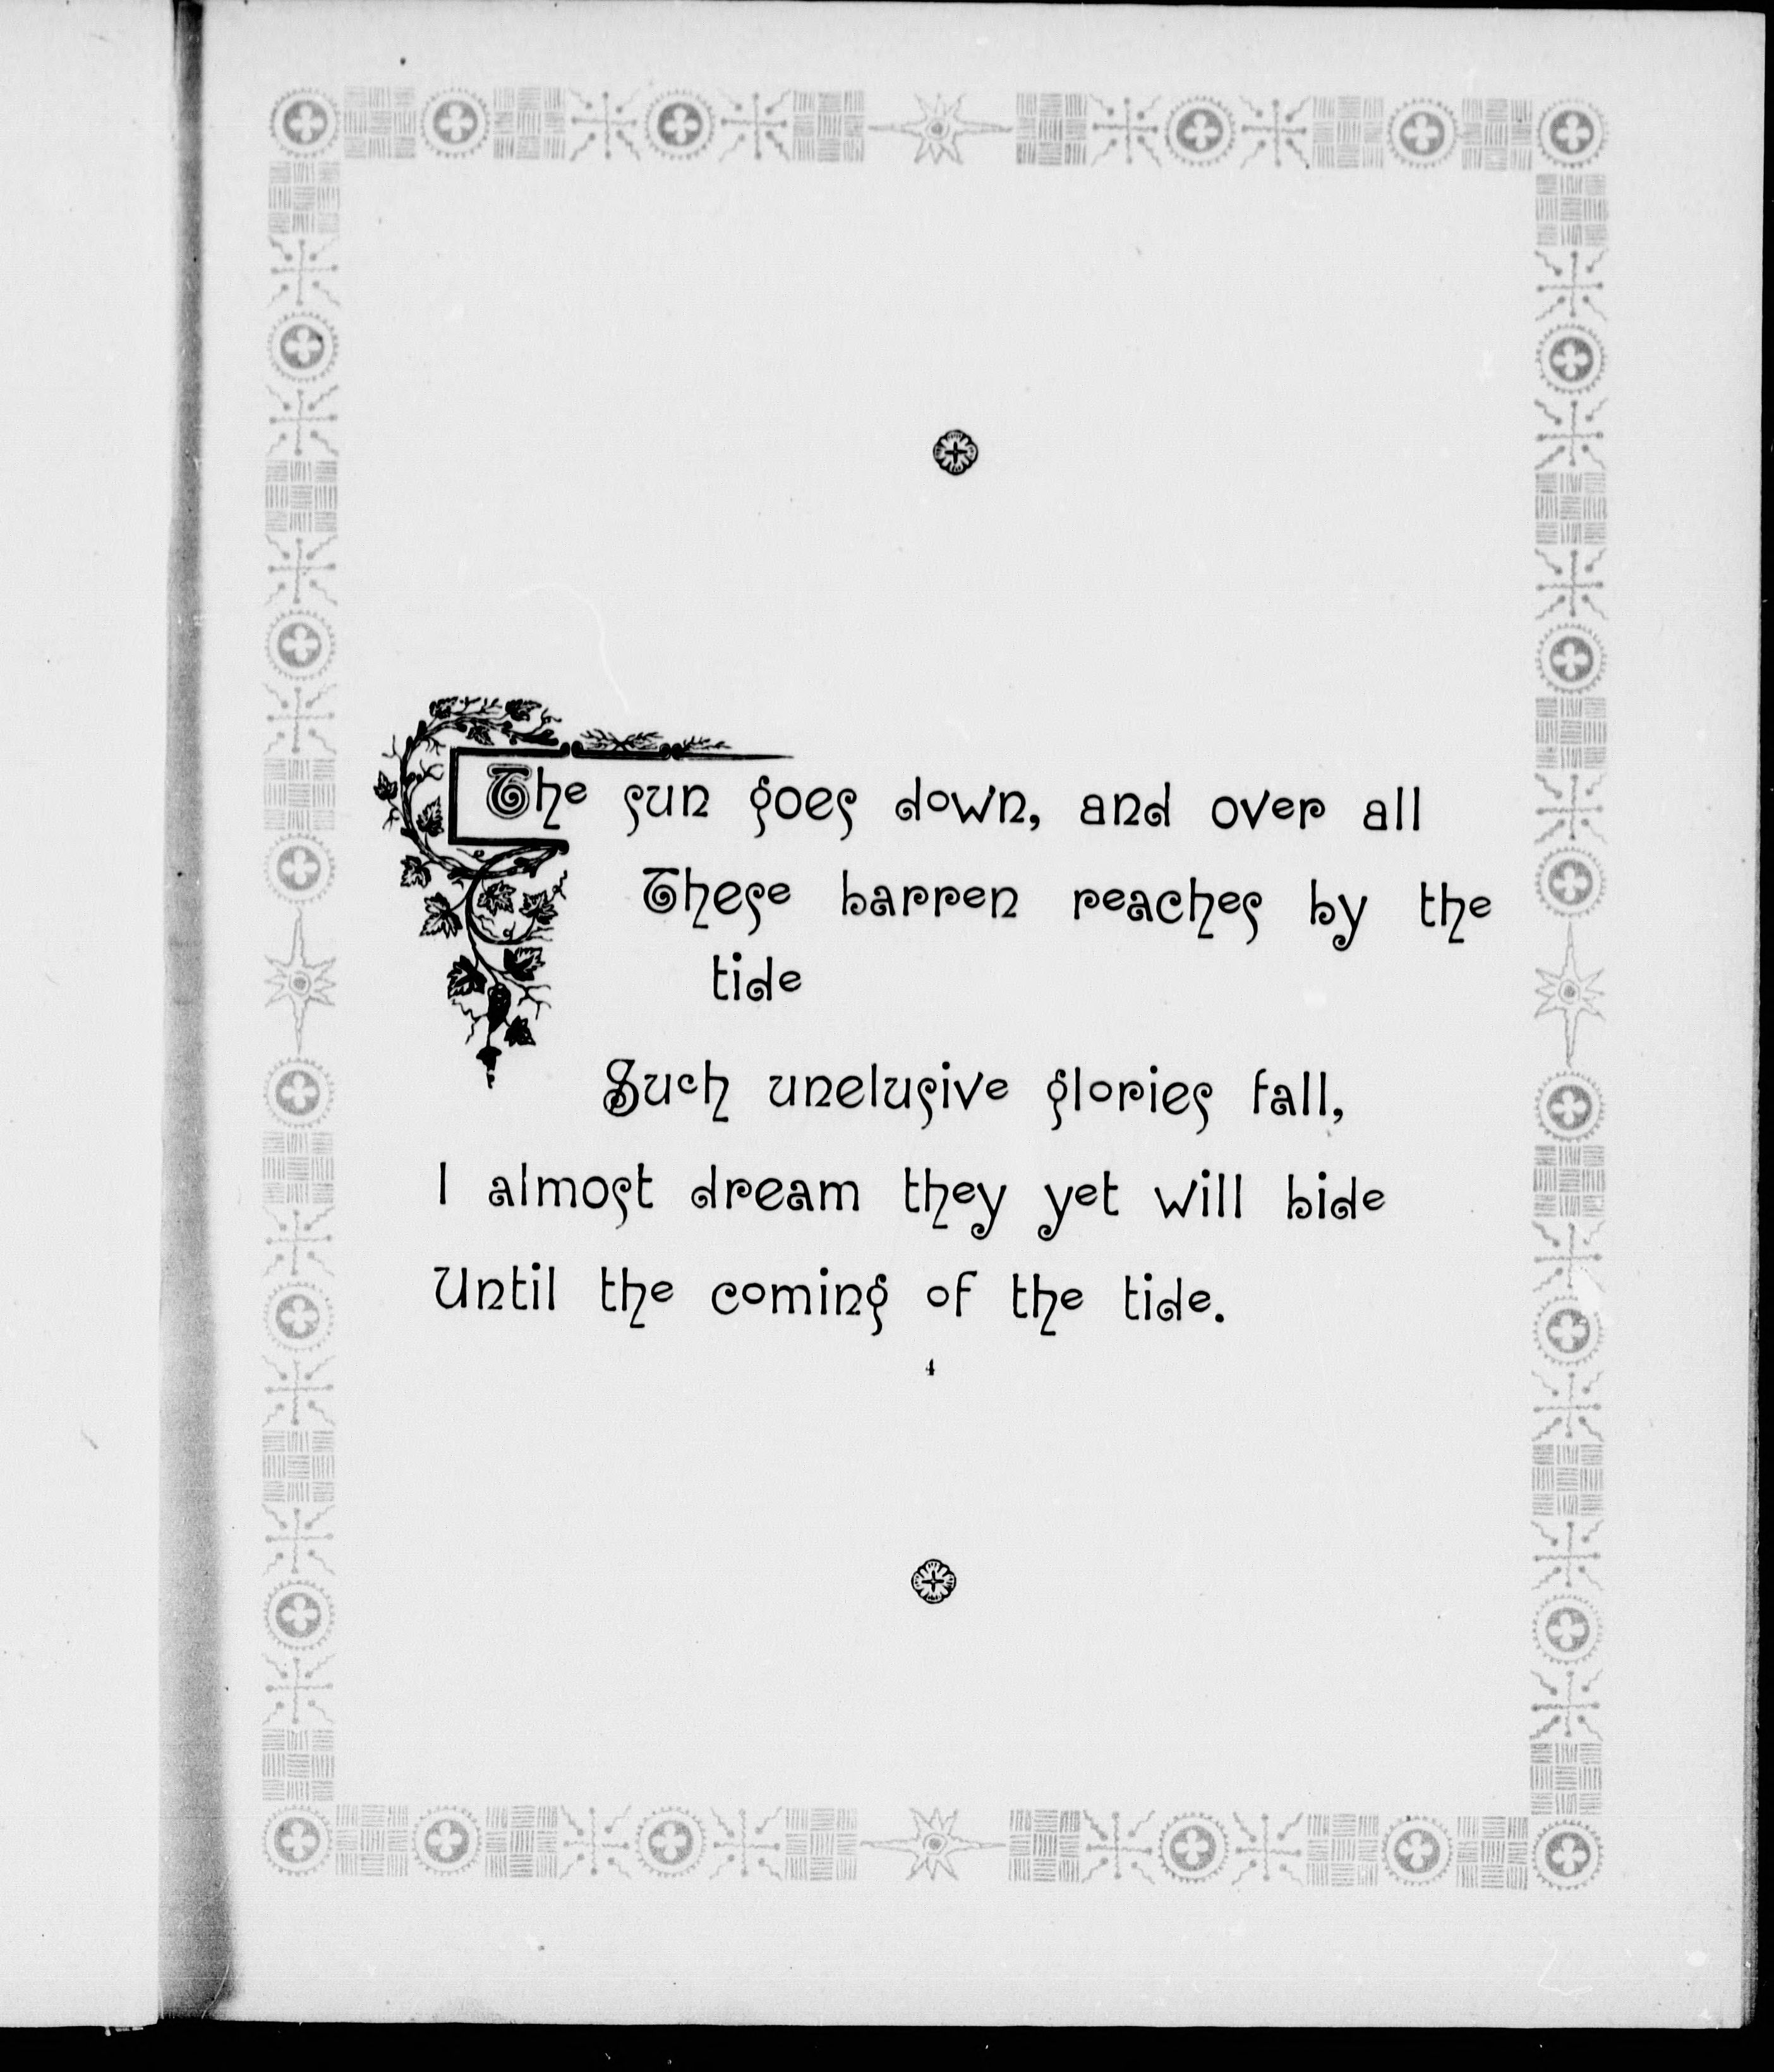 The sun goes down, and over all
These barren reaches by the
tide
Such unelusive glories fall,
I almost dream they yet will bide
Until the coming of the tide.
4